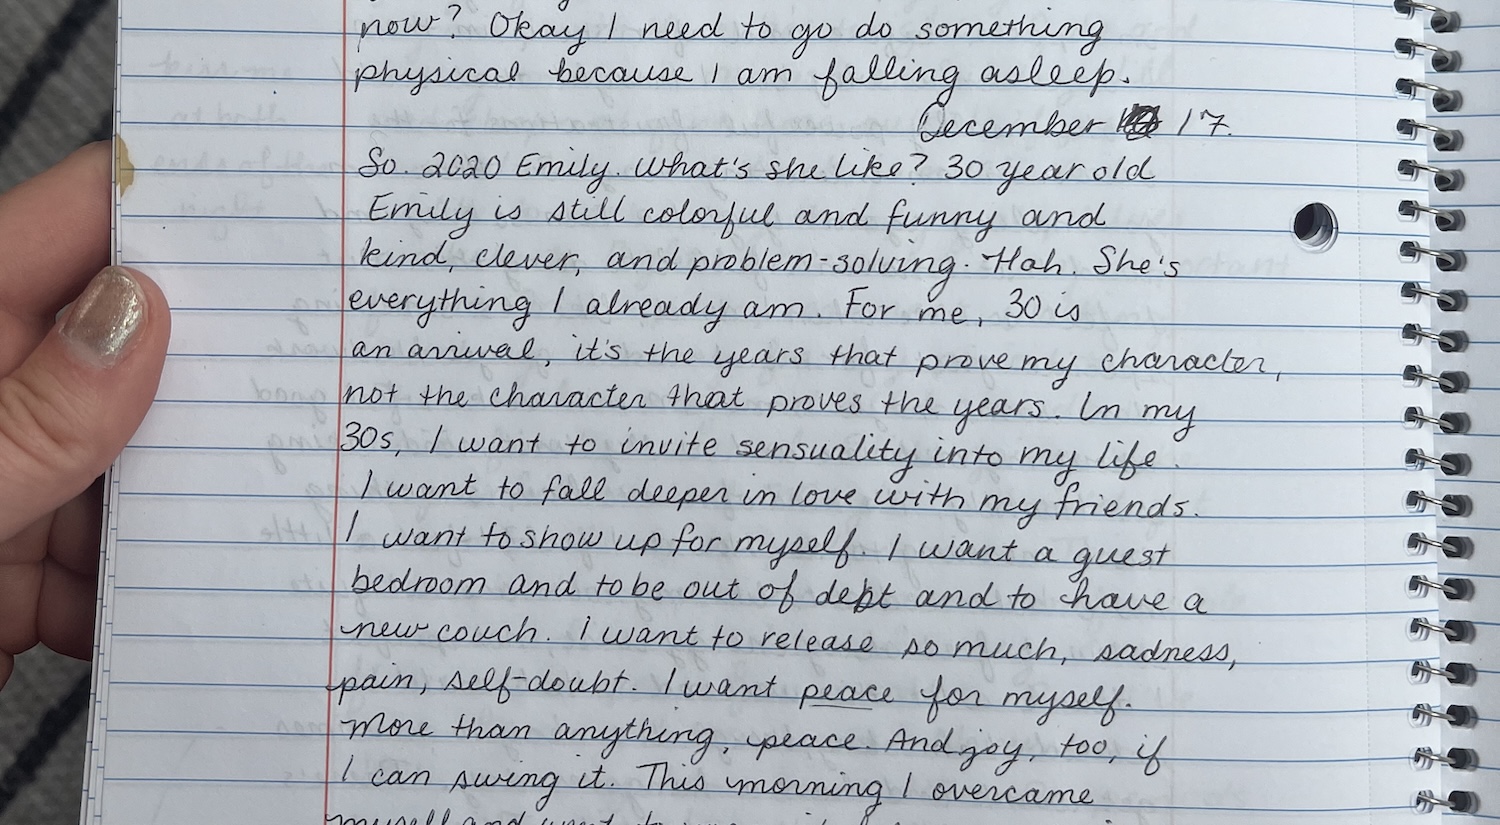 now? Okay I need to go do something
physical because I am falling asleep.
December 17.
So. 2020 Emily. What's she like? 30 year old
Emily is still colorful and funny and
kind, clever, and problem-solving. Hah. She's
everything I already am. For me, 30 is
an arrival, it's the years that prove my character,
not the character that proves the years. In my
30s, I want to invite sensuality into my life.
I want to fall deeper in love with my friends.
I want to show up for myself. I want a guest
bedroom and to be out of debt and to have a
new couch. I want to release so much, sadness,
pain, self-doubt. I want peace for myself.
More than anything, peace. And joy, too, if
I can swing it. This morning I overcame
myself and